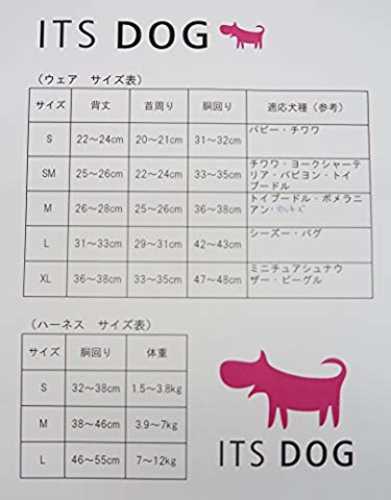 ITS DOG
（ウェア サイズ表）
サイズ 背丈 首周り 胴回り 適応犬種（参考）
S 22～24cm 20～21cm 31～32cm パピー・チワワ
SM 25～26cm 22～24cm 33～35cm チワワ・ヨークシャーテ
リア・パピヨン・トイ
プードル
M 26～28cm 25～26cm 36～38cm トイプードル・ポメラニ
アン・
L 31～33cm 29～31cm 42～43cm シーズー・パグ
XL 36～38cm 33～35cm 47～48cm ミニチュアシュナウ
ザー・ビーグル
（ハーネス サイズ表）
サイズ 胴回り 体重
S 32～38cm 1.5～3.8kg
M 38～46cm 3.9～7kg
L 46～55cm 7～12kg
ITS DOG